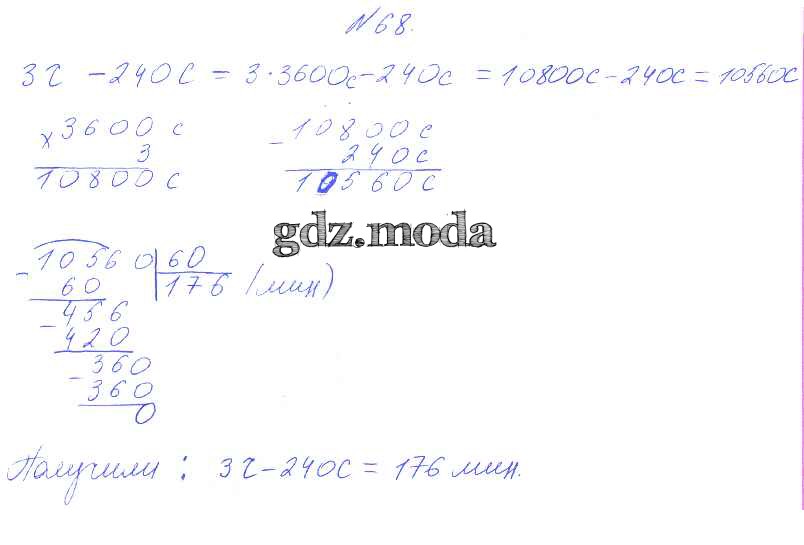 №68.
3 ч – 240 с = 3·3600с – 240с = 10800с – 240с = 10560с
× 3600 с
3
10800 с
– 10800 с
240 с
10560 с
gdz.moda
– 10560 | 60
60 176 (мин)
– 456
420
– 360
360
0
Получили : 3 ч – 240 с = 176 мин.